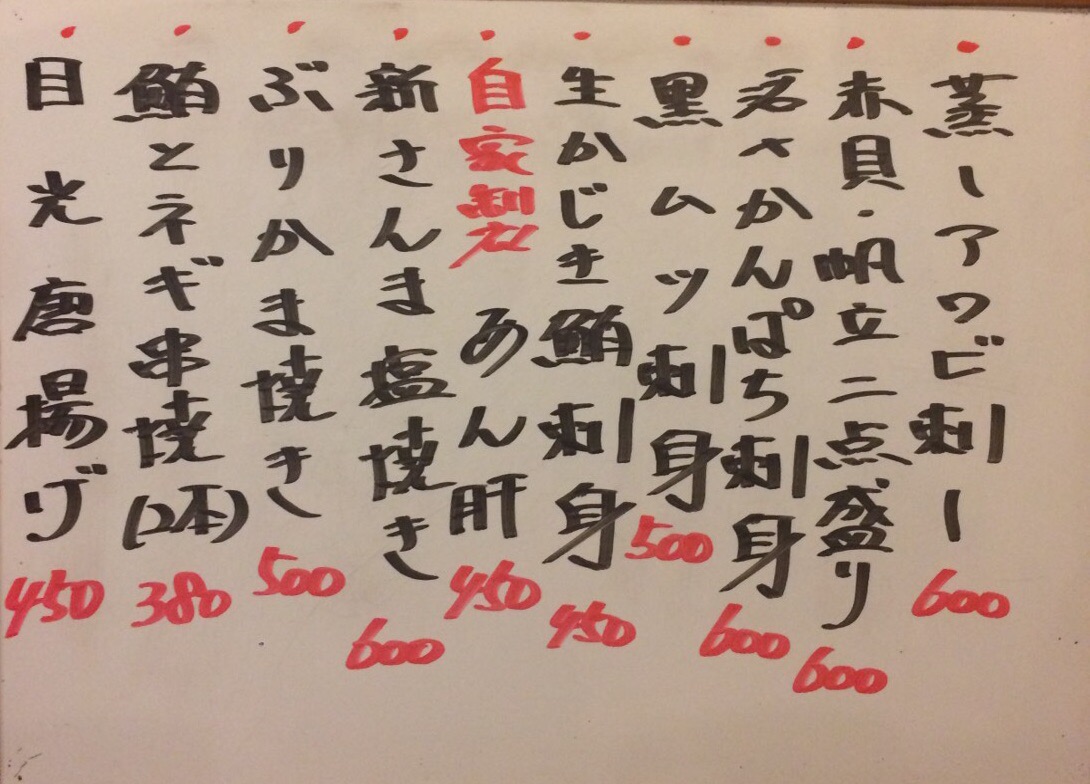 蒸しアワビ刺し 600
赤貝・帆立二点盛り 600
かんぱち刺身 600
黒ムツ刺身 500
生かじき鮪刺身 450
自家製 あん肝 450
新さんま塩焼き 600
ぶりかま焼き 500
鮪とネギ串焼(2本) 380
目光唐揚げ 450